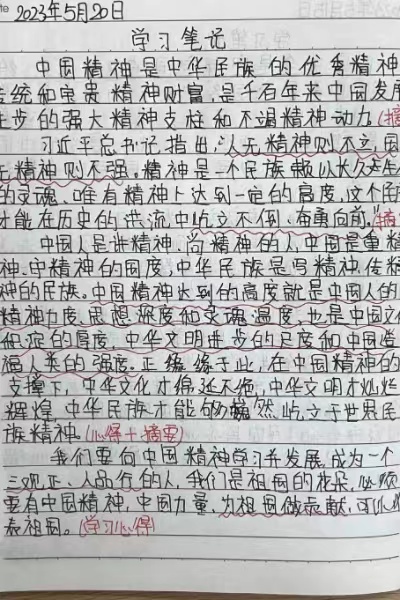 2023年5月20日
学习笔记
中国精神是中华民族的优秀精神
传统和宝贵精神财富,是千百年来中国发展
进步的强大精神支柱和不竭精神动力。(摘
习近平总书记指出:"人无精神则不立,国
无精神则不强。精神是一个民族赖以长久生
的灵魂、唯有精神上达到一定的高度,这个民
才能在历史的洪流中屹立不倒、奋勇向前。"(摘
中国人是讲精神、尚精神的人,中国是重精
神、守精神的国度,中华民族是写精神、传精
神的民族。中国精神达到的高度就是中国人的
精神力度、思想深度和灵魂温度,也是中国文
积淀的厚度、中华文明进步的尺度和中国造
福人类的强度。正缘缘于此,在中国精神的
支撑下,中华文化才绵延不绝,中华文明才灿烂
辉煌,中华民族才能够巍然屹立于世界民
族精神。(心得+摘要)
我们要向中国精神学习并发展,成为一个
三观正、人品行的人,我们是祖国的花朵,必须
要有中国精神,中国力量、为祖国做贡献,可以
表祖国。(学习心得)